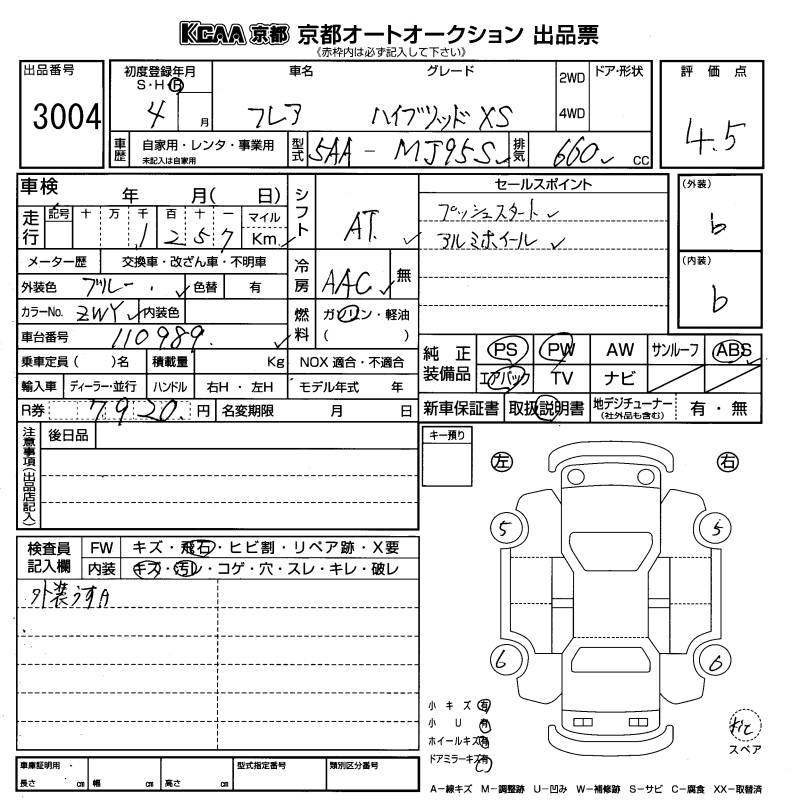 KCAA 京都 京都オートオークション 出品票
《赤枠内は必ず記入して下さい》
出品番号
3004
初度登録年月
S・H・R
4 月
車名
フレア
グレード
ハイブリッド XS
2WD
4WD
ドア・形状
評価点
4.5
車歴
自家用・レンタ・事業用
未記入は自家用
型式
5AA - MJ95S
排気
660 cc
車検 年 月( 日)
走行
記号 十 万 千 百 十 一 マイル
1257 Km
シフト
AT
メーター歴 交換車・改ざん車・不明車
冷房
AAC 無
外装色 ブルー 色替 有
カラーNo. ZWY 内装色
燃料
ガソリン・軽油
( )
車台番号 110989
乗車定員( )名 積載量 Kg NOX 適合・不適合
輸入車 ディーラー・並行 ハンドル 右H・左H モデル年式 年
R券 7920 円 名変期限 月 日
セールスポイント
プッシュスタート
アルミホイール
(外装)
b
(内装)
b
純正装備品
PS PW AW サンルーフ ABS
エアバック TV ナビ
新車保証書 取扱説明書 地デジチューナー 有・無
(社外品も含む)
注意事項(出品店記入)
後日品
キー預り
左 右
5 5
6 6
検査員記入欄
FW キズ・飛石・ヒビ割・リペア跡・X要
内装 キズ・汚レ・コゲ・穴・スレ・キレ・破レ
外装うすA
小キズ 有
小U 有
ホイールキズ 有
ドアミラーキズ 有
スペア
車庫証明用
長さ cm 幅 cm 高さ cm
型式指定番号
類別区分番号
A-線キズ M-調整跡 U-凹み W-補修跡 S-サビ C-腐食 XX-取替済